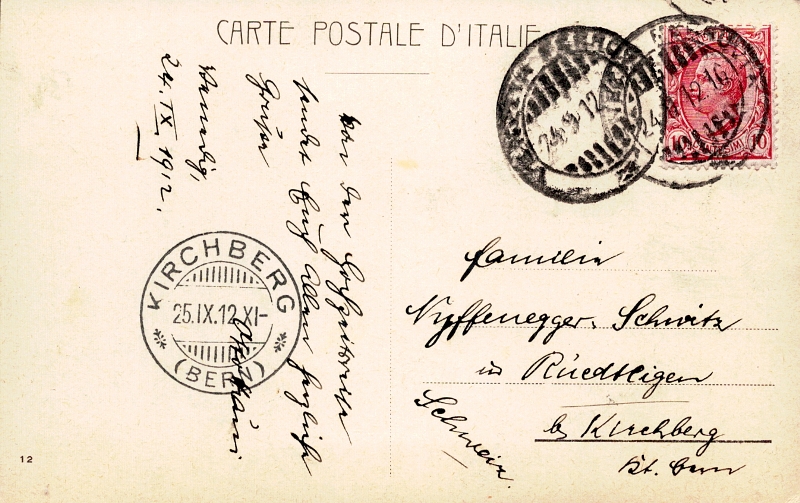 CARTE POSTALE D'ITALIE
Venedig,
24. IX. 1912.
Von der Hochzeitsreise
sendet Euch allen herzliche
Grüsse
KIRCHBERG
25.IX.12.XI-
(BERN)
24.9.12
10
Familie
Nyffenegger-Schwitz
in Rüedtligen
b/ Kirchberg
Kt. Bern
Schweiz.
12